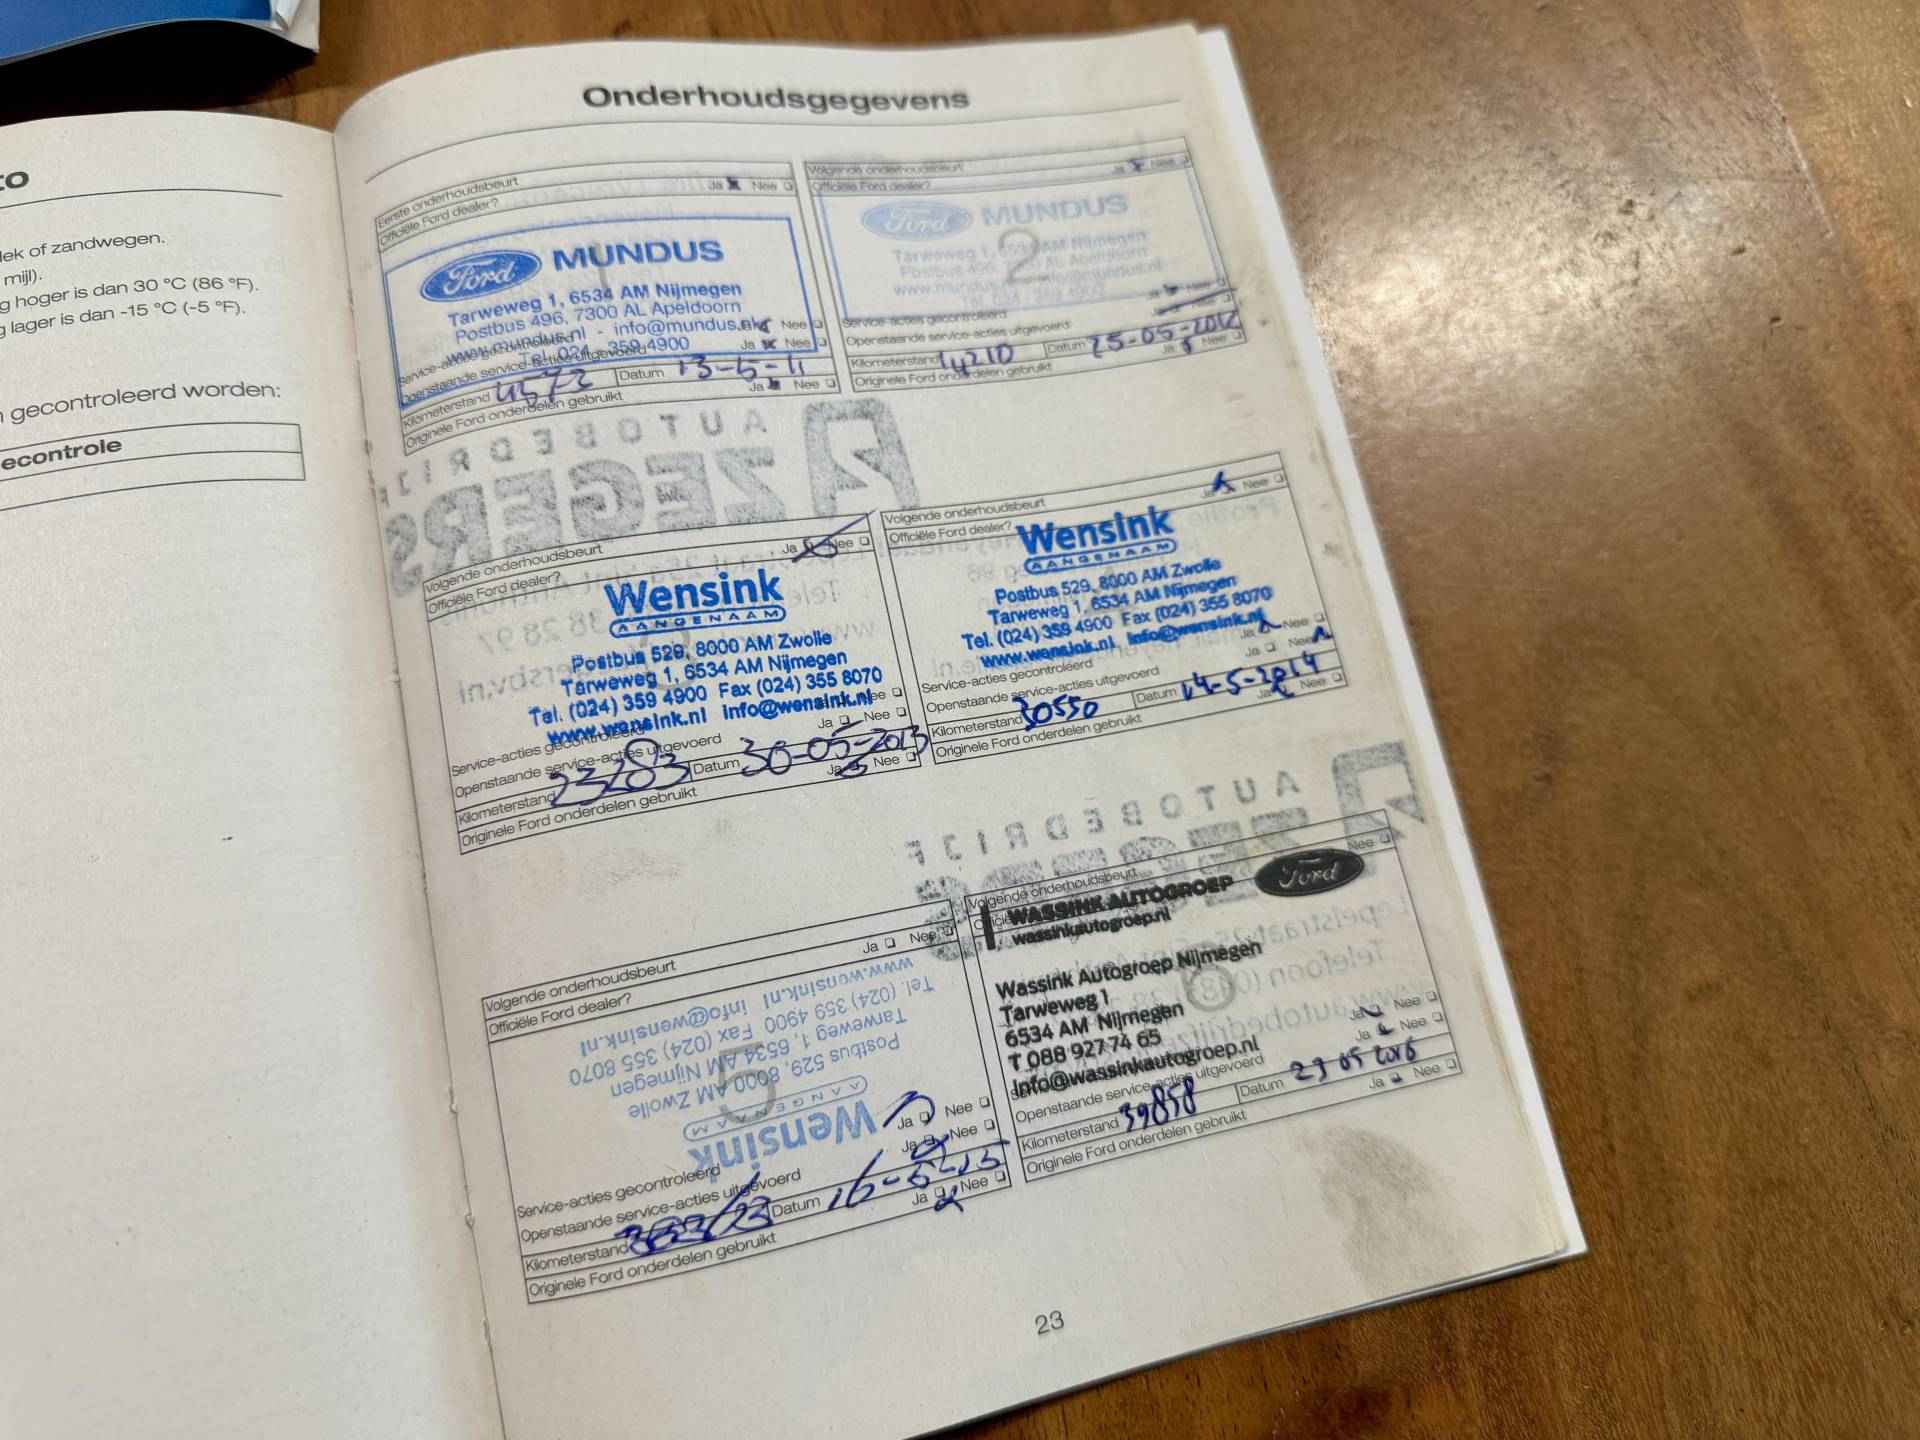 to
lek of zandwegen.
mijl).
g hoger is dan 30 °C (86 °F).
g lager is dan -15 °C (-5 °F).
n gecontroleerd worden:
econtrole
Onderhoudsgegevens
Eerste onderhoudsbeurt
Officiële Ford dealer? Ja Nee
1
Ford MUNDUS
Tarweweg 1, 6534 AM Nijmegen
Postbus 496, 7300 AL Apeldoorn
www.mundus.nl - info@mundus.nl
Tel. 024 - 359 4900
Service-acties gecontroleerd Nee
Openstaande service-acties uitgevoerd Ja Nee
Kilometerstand 4572 Datum 13-5-11
Originele Ford onderdelen gebruikt Ja Nee
Volgende onderhoudsbeurt
Officiële Ford dealer? Ja Nee
2
Ford MUNDUS
Tarweweg 1, 6534 AM Nijmegen
Postbus 496, 7300 AL Apeldoorn
www.mundus.nl info@mundus.nl
Tel. 024 - 359 4900
Service-acties gecontroleerd Ja
Openstaande service-acties uitgevoerd
Kilometerstand 14210 Datum 25-05-2012
Originele Ford onderdelen gebruikt Ja Nee
AUTOBEDRIJF
ZEGERS
Volgende onderhoudsbeurt
Officiële Ford dealer? Ja Nee
Wensink
AANGENAAM
Postbus 529, 8000 AM Zwolle
Tarweweg 1, 6534 AM Nijmegen
Tel. (024) 359 4900 Fax (024) 355 8070
www.wensink.nl info@wensink.nl
Service-acties gecontroleerd Nee
Openstaande service-acties uitgevoerd Ja Nee
Kilometerstand 23283 Datum 30-05-2013
Originele Ford onderdelen gebruikt Ja Nee
Volgende onderhoudsbeurt
Officiële Ford dealer? Ja Nee
Wensink
AANGENAAM
Postbus 529, 8000 AM Zwolle
Tarweweg 1, 6534 AM Nijmegen
Tel. (024) 359 4900 Fax (024) 355 8070
www.wensink.nl info@wensink.nl
Service-acties gecontroleerd Ja Nee
Openstaande service-acties uitgevoerd Ja Nee
Kilometerstand 30550 Datum 14-5-2014
Originele Ford onderdelen gebruikt Ja Nee
AUTOBEDRIJF
ZEGERS
Volgende onderhoudsbeurt
Officiële Ford dealer? Ja Nee
5
Wensink
AANGENAAM
Postbus 529, 8000 AM Zwolle
Tarweweg 1, 6534 AM Nijmegen
Tel. (024) 359 4900 Fax (024) 355 8070
www.wensink.nl info@wensink.nl
Service-acties gecontroleerd Ja Nee
Openstaande service-acties uitgevoerd Ja Nee
Kilometerstand Datum 16-5-15
Originele Ford onderdelen gebruikt Ja Nee
Volgende onderhoudsbeurt
Nee
6
WASSINK AUTOGROEP Ford
wassinkautogroep.nl
Wassink Autogroep Nijmegen
Tarweweg 1
6534 AM Nijmegen
T 088 927 74 65
info@wassinkautogroep.nl
Ja Nee
Openstaande service-acties uitgevoerd Ja Nee
Kilometerstand 39858 Datum 23 05 2016
Originele Ford onderdelen gebruikt Ja Nee
23